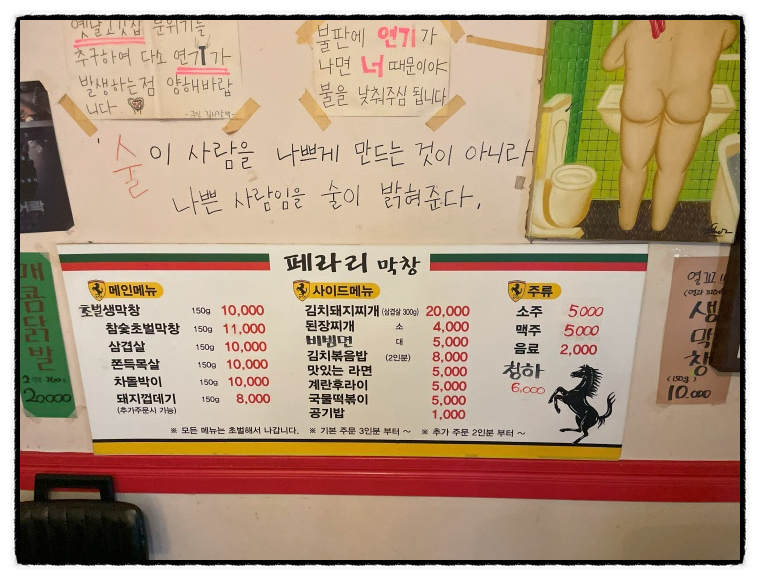 옛날고깃집 분위기를
추구하여 다소 연기가
발생하는점 양해바랍
니다
불판에 연기가
나면 너 때문이야
불을 낮춰주심 됩니다
술이 사람을 나쁘게 만드는 것이 아니라
나쁜 사람임을 술이 밝혀준다.
페라리 막창
메인메뉴
초벌생막창 150g 10,000
참숯초벌막창 150g 11,000
삼겹살 150g 10,000
쫀득목살 150g 10,000
차돌박이 150g 10,000
돼지껍데기 150g 8,000
(추가주문시 가능)
사이드메뉴
김치돼지찌개 (삼겹살 300g) 20,000
된장찌개 소 4,000
비빔면 대 5,000
김치볶음밥 (2인분) 8,000
맛있는 라면 5,000
계란후라이 5,000
국물떡볶이 5,000
공기밥 1,000
주류
소주 5000
맥주 5000
음료 2,000
청하
6.000
※ 모든 메뉴는 초벌해서 나갑니다. ※ 기본 주문 3인분 부터 ~ ※ 추가 주문 2인분 부터 ~
매콤닭발
20000
생막창
(150g)
10.000